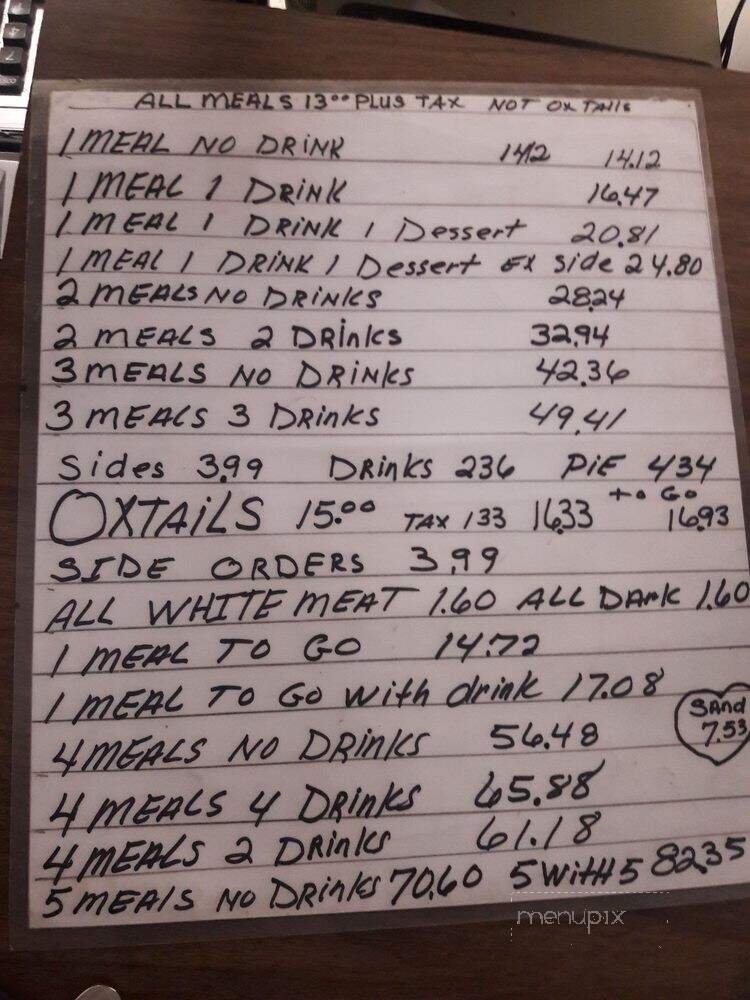 ALL MEALS 13⁰⁰ PLUS TAX NOT OXTAILS
1 MEAL NO DRINK 1412 14.12
1 MEAL 1 DRINK 16.47
1 MEAL 1 DRINK 1 Dessert 20.81
1 MEAL 1 DRINK 1 Dessert EX side 24.80
2 MEALS NO DRINKS 28.24
2 MEALS 2 DRINKS 32.94
3 MEALS NO DRINKS 42.36
3 MEALS 3 DRINKS 49.41
Sides 3.99 DRINKS 236 PIE 434
OXTAILS 15.⁰⁰ TAX 133 16.33 to Go 16.93
SIDE ORDERS 3.99
ALL WHITE MEAT 1.60 ALL DARK 1.60
1 MEAL TO GO 14.72
1 MEAL TO GO with drink 17.08
SAnd 7.53
4 MEALS NO DRINKS 56.48
4 MEALS 4 DRINKS 65.88
4 MEALS 2 DRINKS 61.18
5 MEALS NO DRINKS 70.60 5 WITH 5 82.35
menupix